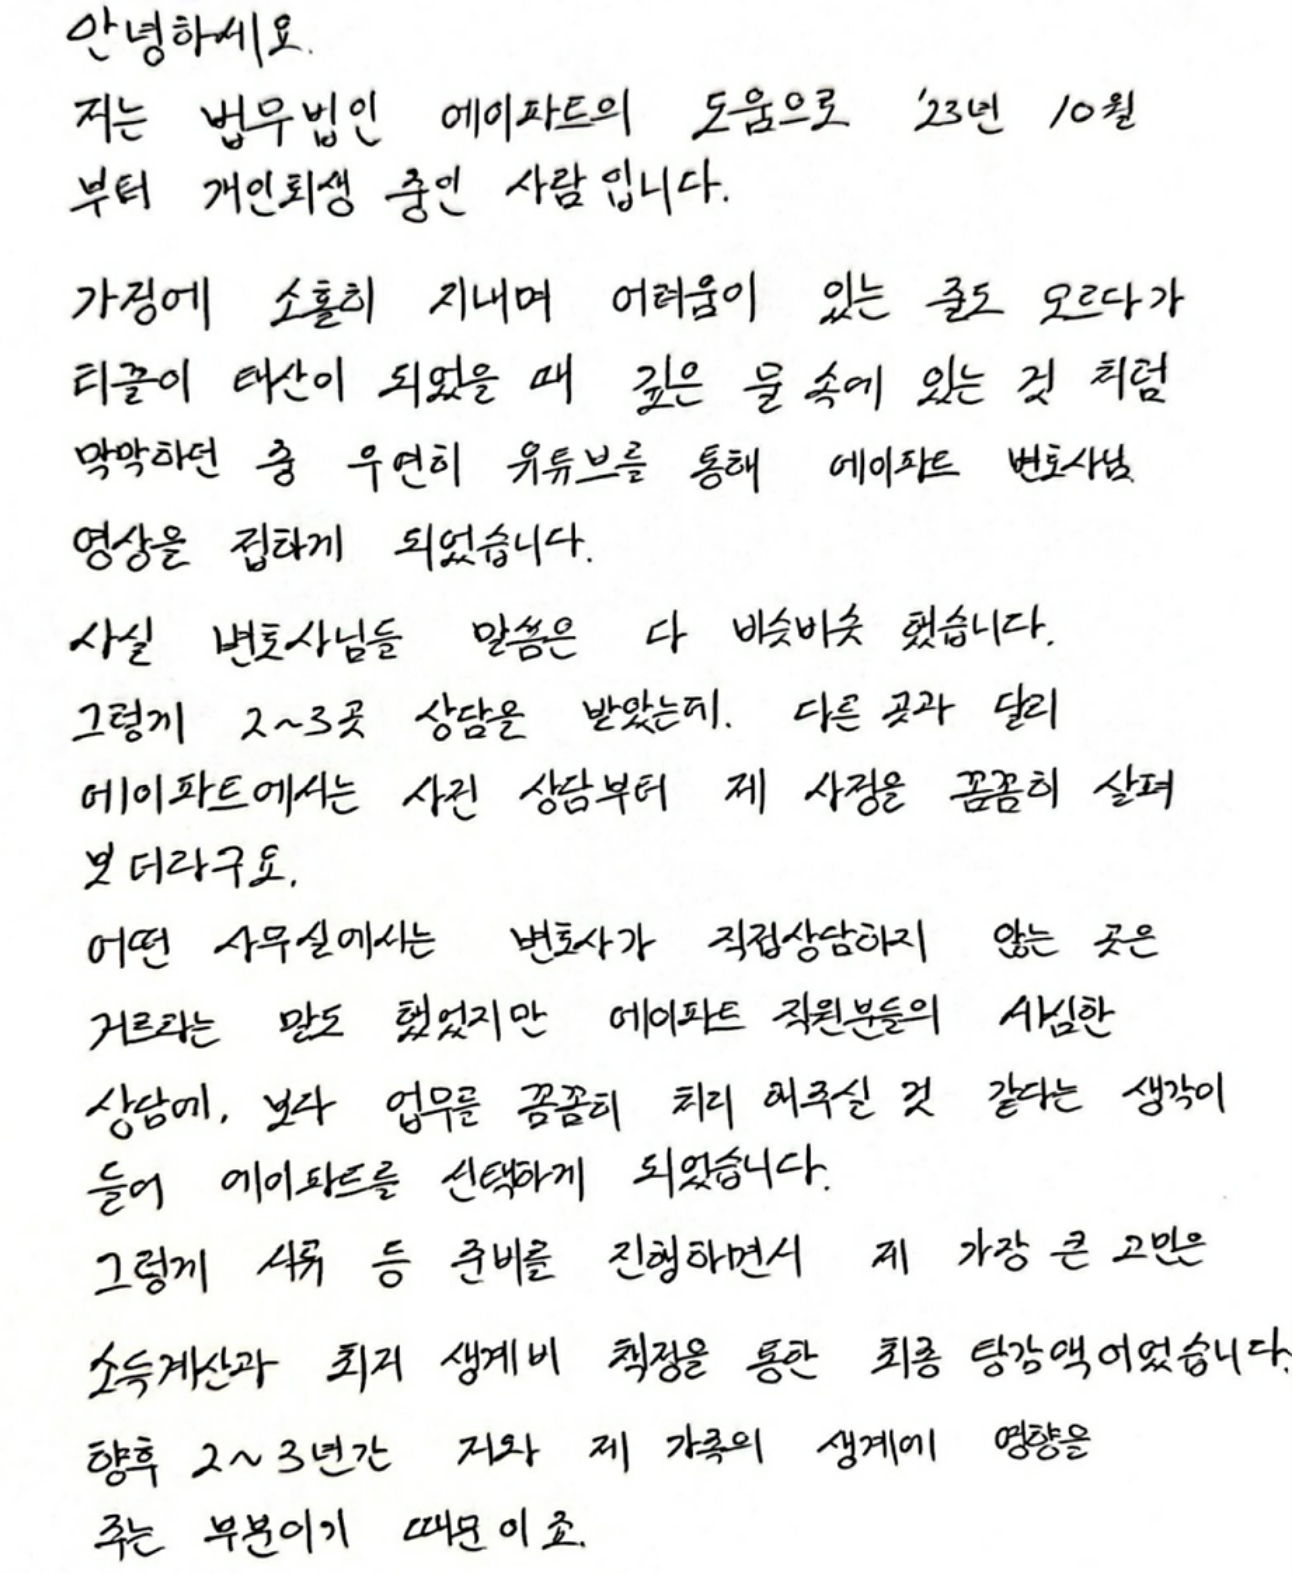 안녕하세요.
저는 법무법인 에이파트의 도움으로 '23년 10월
부터 개인회생 중인 사람입니다.
가정에 소홀히 지내며 어려움이 있는 줄도 모르다가
티끌이 태산이 되었을 때 깊은 물 속에 있는 것 처럼
막막하던 중 우연히 유튜브를 통해 에이파트 변호사님
영상을 접하게 되었습니다.
사실 변호사님들 말씀은 다 비슷비슷 했습니다.
그렇게 2~3곳 상담을 받았는데. 다른 곳과 달리
에이파트에서는 사전 상담부터 제 사정을 꼼꼼히 살펴
보더라구요.
어떤 사무실에서는 변호사가 직접상담하지 않는 곳은
거르라는 말도 했었지만 에이파트 직원분들의 세심한
상담에, 보다 업무를 꼼꼼히 처리 해주실 것 같다는 생각이
들어 에이파트를 선택하게 되었습니다.
그렇게 서류 등 준비를 진행하면서 제 가장 큰 고민은
소득계산과 최저 생계비 책정을 통한 최종 탕감액이었습니다.
향후 2~3년간 저와 제 가족의 생계에 영향을
주는 부분이기 때문이죠.